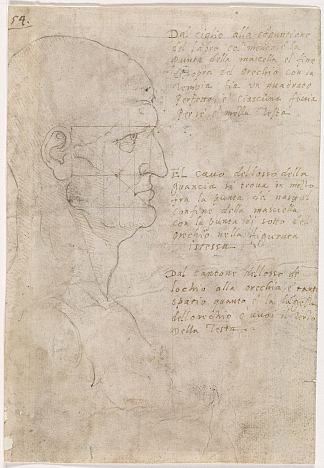 54.
Dal ciglio alla congiuntione
del labro col mento, e la
punta della mascella, e il fine
di sopra del orechio con la
tempia fia un quadrato
perfetto, e ciascuna faccia
per se e mezza Testa
El cavo dell'osso della
guancia si trova in mezo
fra la punta de naso, e'l
confine della mascella
con la punta di sotto de l'
orechio nella figurata
istessa
Dal cantone dell'osso de
l'ochio alla orechia, e tanto
spatio quanto e la
dell'orechio, o vuoi il terzo
della Testa.